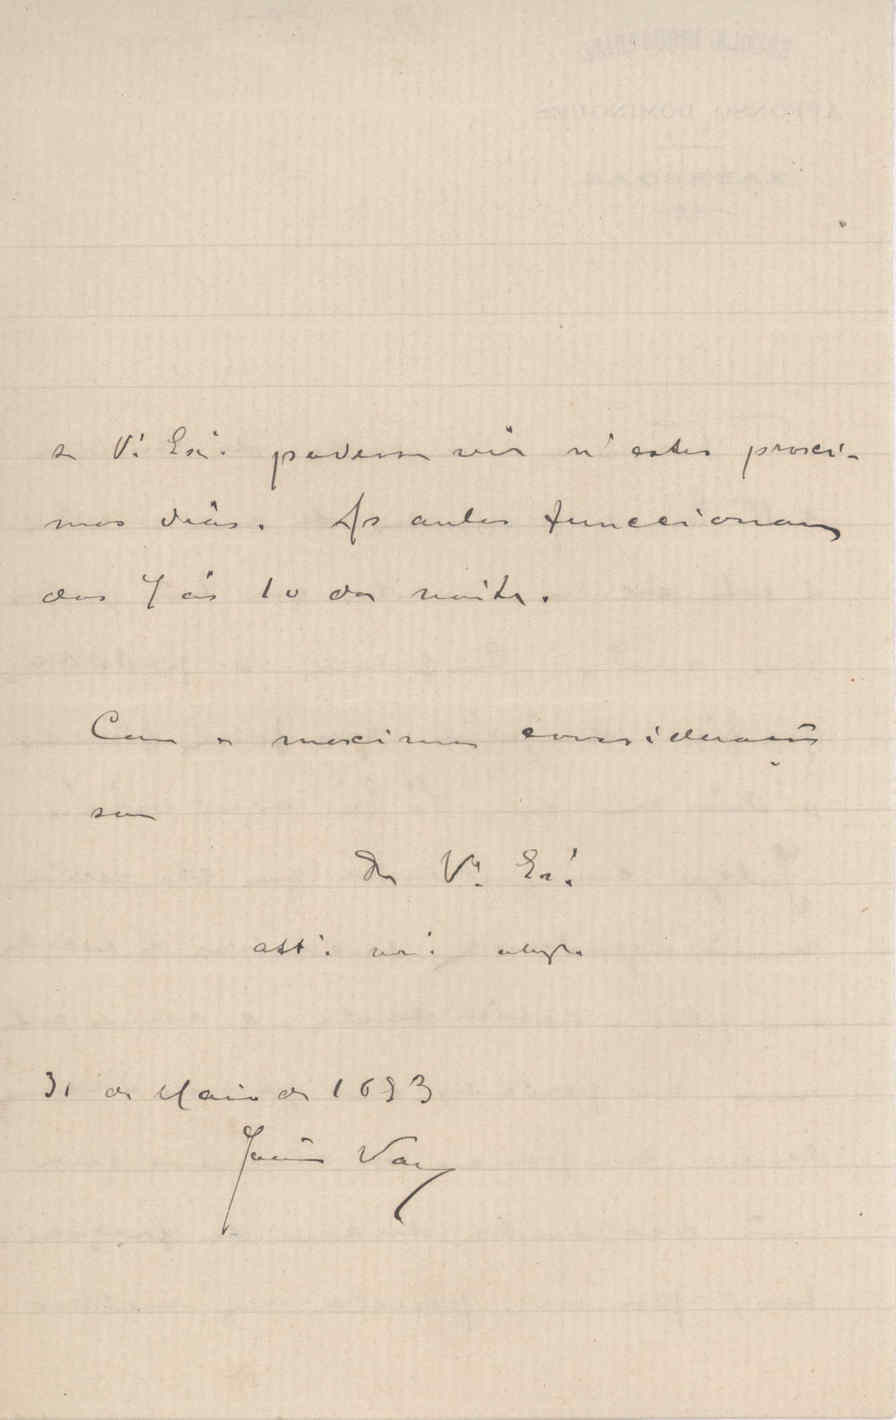 se V.ª Ex.ª podesse vir n'estes proxi-
mos dias. As aulas funccionam
das 7 ás 10 da noite.
Com a maxima consideração
sou
De V.ª Ex.ª
att.º ven.ºr obg.º
31 de Maio de 1893
João Vaz